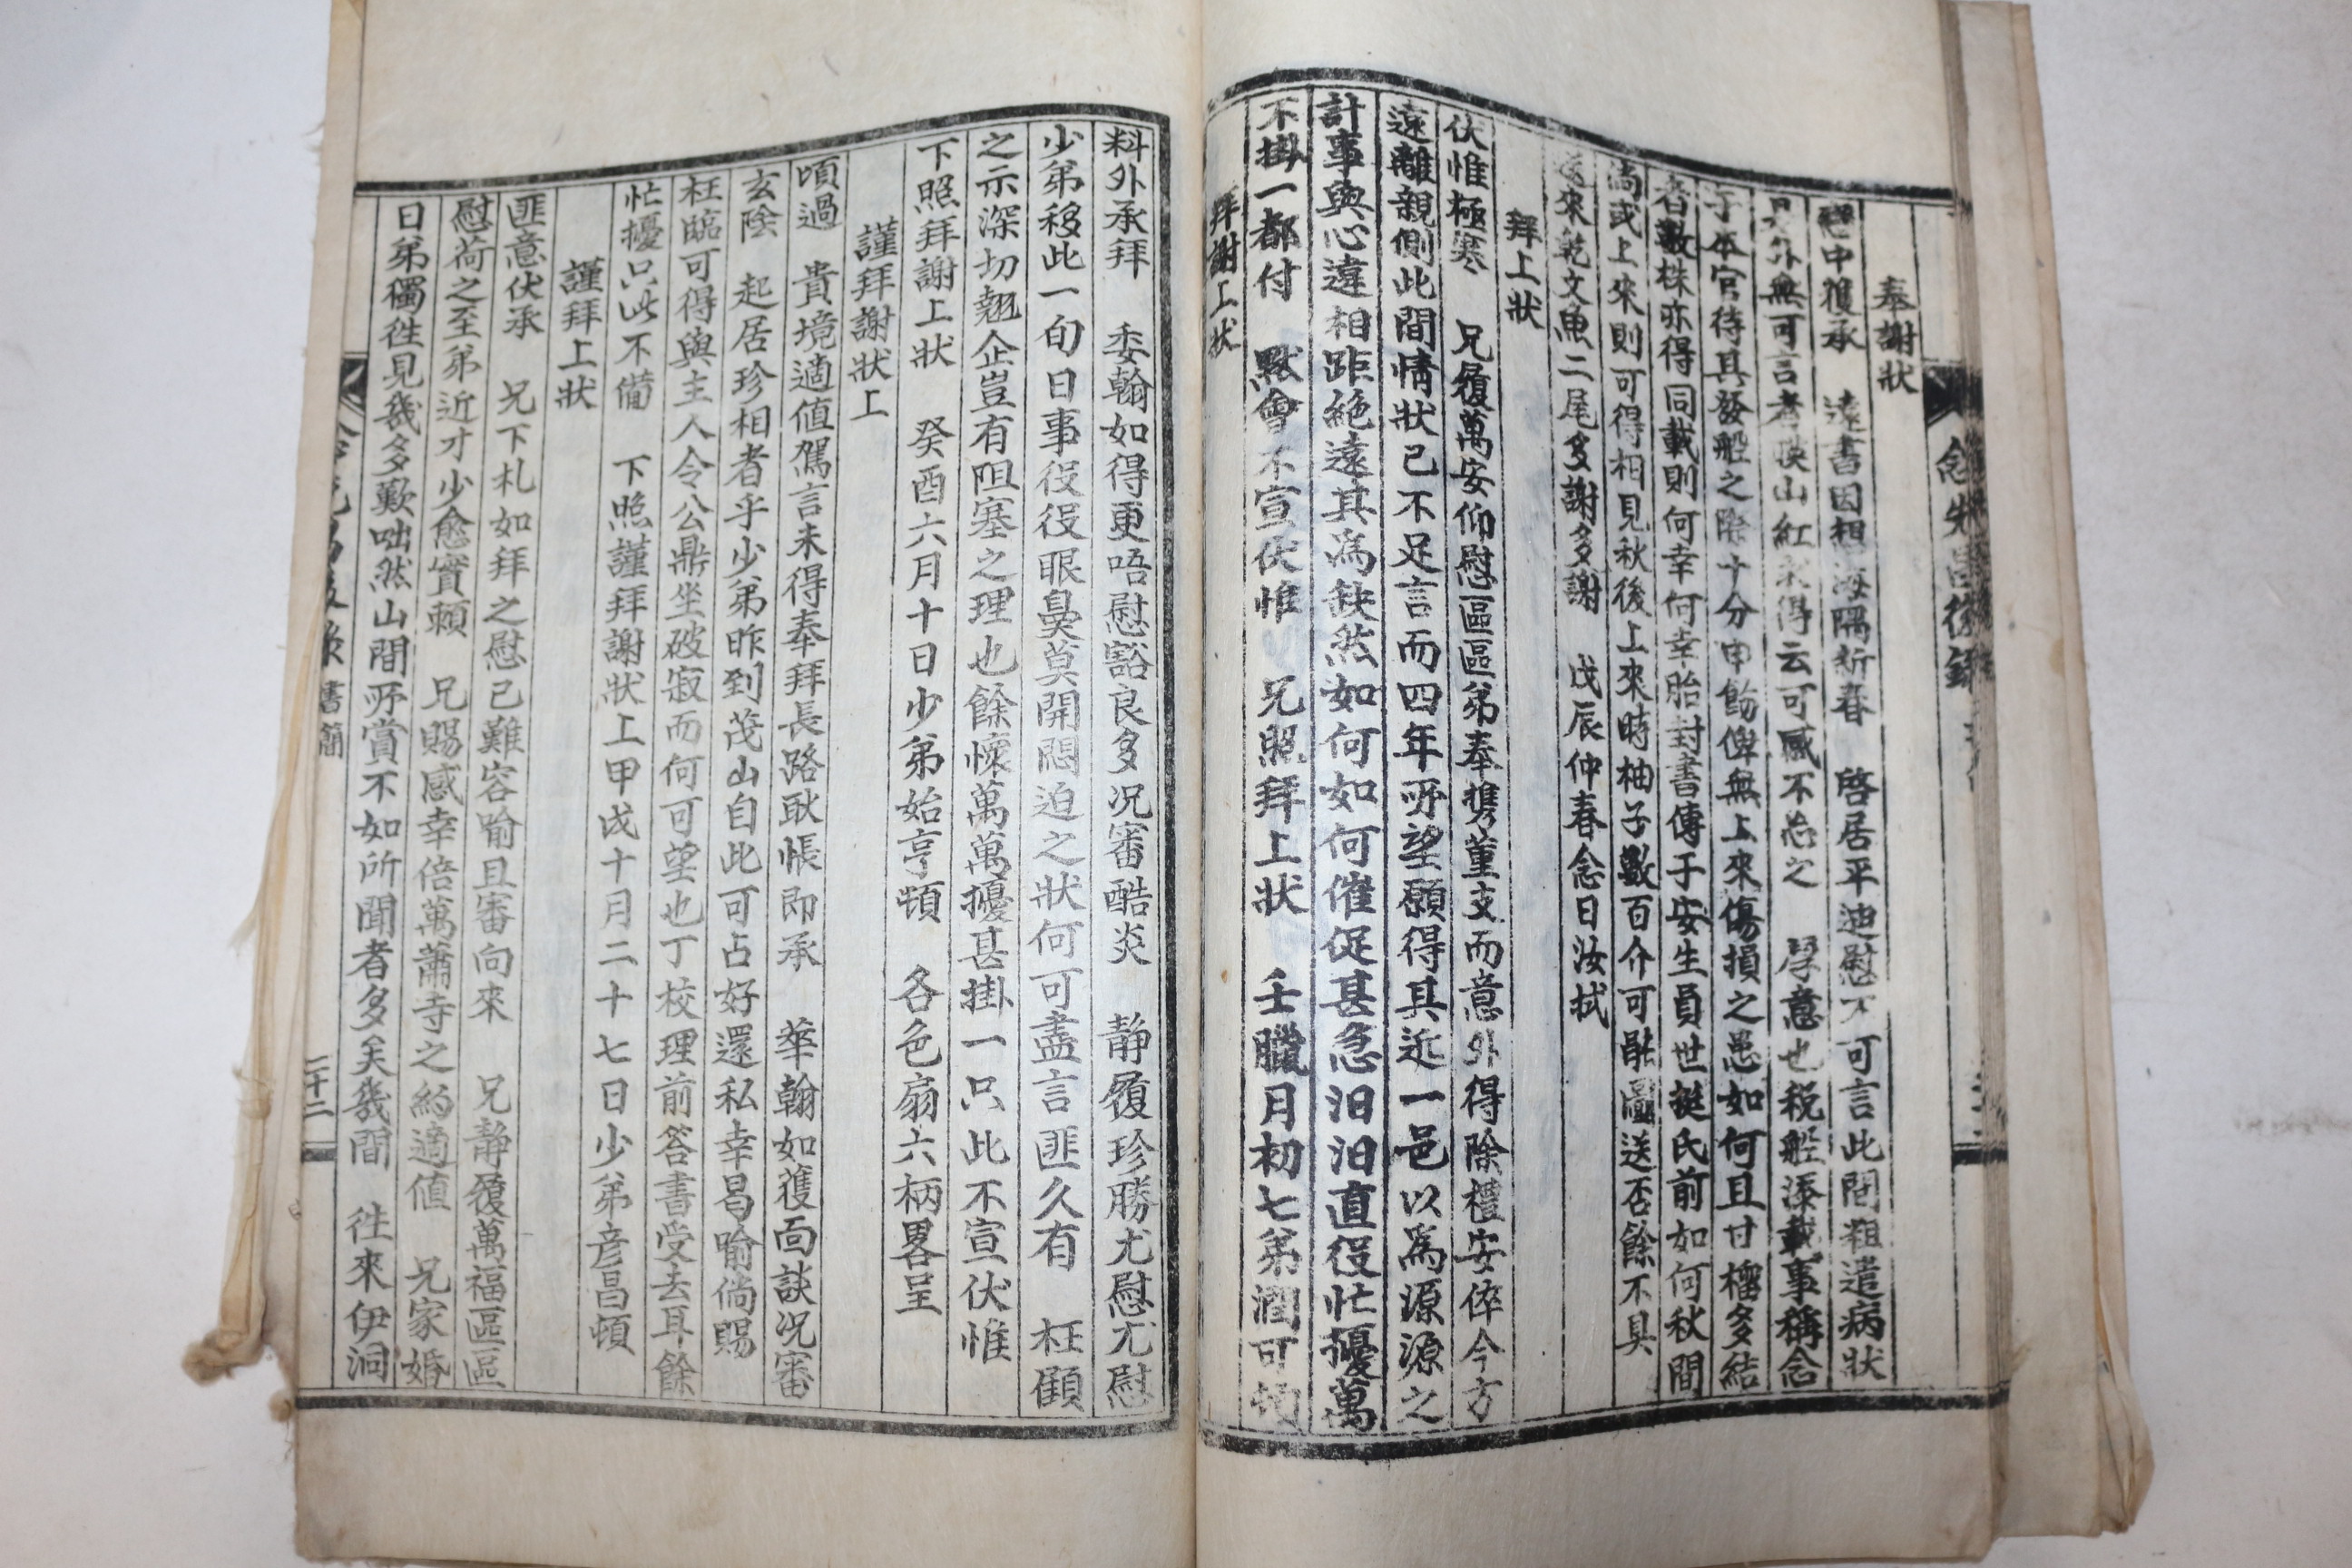 奉謝狀
戀中獲承 遠書因想海隅新春 啓居平迪慰不可言此間粗遣病狀
外無可言者 山紅 得云可感不忘之 厚意也稅船添載事稱念
于本官待其發船之際十分申飭俾無上來傷損之患如何且甘榴多結
者數株亦得同載則何幸何幸胎封書傳于安生員世挻氏前如何秋間
尚或上來則可得相見秋後上來時柚子數百介可能圖送否餘不具
送來乾文魚二尾多謝多謝 戊辰仲春念日汝拭
拜上狀
伏惟極寒 兄履萬安仰慰區區弟奉携菫支而意外得除禮安倅今方
遠離親側此間情狀已不足言而四年所望願得其近一邑以爲源源之
計事與心違相距絶遠其爲缺然如何如何催促甚急汨汨直役忙擾萬
不掛一都付 默會不宣伏惟 兄照拜上狀 壬臘月初七弟潤可頓
拜謝上狀
料外承拜 委翰如得更唔慰豁良多况審酷炎 静履珍勝尤慰尤慰
少弟移此一旬日事役役眼鼻莫開悶迫之狀何可盡言匪久有 枉顧
之示深切翹企豈有阻塞之理也餘懷萬萬擾甚掛一只此不宣伏惟
下照拜謝上狀 癸酉六月十日少弟始亨頓 各色扇六柄畧呈
謹拜謝狀上
頃過 貴境適値駕言未得奉拜長路耿悵即承 華翰如獲面談况審
玄陰 起居珍相者乎少弟昨到茂山自此可占好還私幸曷喻倘賜
枉臨可得與主人令公鼎坐破寂而何可望也丁校理前答書受去耳餘
忙擾只此不備 下照謹拜謝狀上甲戌十月二十七日少弟彦昌頓
謹拜上狀
匪意伏承 兄下札如拜之慰已難容喻且審向來 兄静履萬福區區
慰荷之至弟近才少愈實賴 兄賜感幸倍萬蕭寺之約適値 兄家婚
日弟獨徃見幾多歎咄然山間所賞不如所聞者多矣幾間 徃來伊洞
書簡
二十二